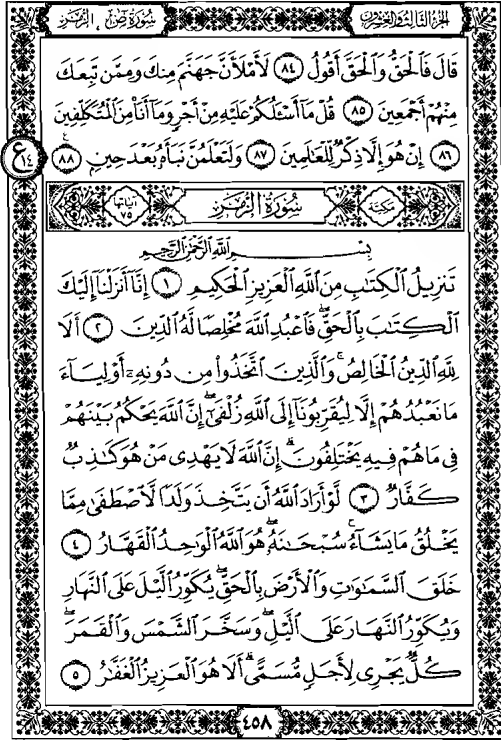 الجزء الثالث والعشرون
سورة ص ، الزمر
قَالَ فَالْحَقُّ وَالْحَقَّ أَقُولُ ٨٤ لَأَمْلَأَنَّ جَهَنَّمَ مِنكَ وَمِمَّن تَبِعَكَ
مِنْهُمْ أَجْمَعِينَ ٨٥ قُلْ مَا أَسْـَٔلُكُمْ عَلَيْهِ مِنْ أَجْرٍ وَمَا أَنَا۠ مِنَ الْمُتَكَلِّفِينَ
٨٦ إِنْ هُوَ إِلَّا ذِكْرٌ لِّلْعَالَمِينَ ٨٧ وَلَتَعْلَمُنَّ نَبَأَهُ بَعْدَ حِينٍ ٨٨
ع ١٤
مكية سورة الزمر آياتها ٧٥
بِسْمِ اللَّهِ الرَّحْمَٰنِ الرَّحِيمِ
تَنزِيلُ الْكِتَابِ مِنَ اللَّهِ الْعَزِيزِ الْحَكِيمِ ١ إِنَّا أَنزَلْنَا إِلَيْكَ
الْكِتَابَ بِالْحَقِّ فَاعْبُدِ اللَّهَ مُخْلِصًا لَّهُ الدِّينَ ٢ أَلَا
لِلَّهِ الدِّينُ الْخَالِصُ ۚ وَالَّذِينَ اتَّخَذُوا مِن دُونِهِ أَوْلِيَاءَ
مَا نَعْبُدُهُمْ إِلَّا لِيُقَرِّبُونَا إِلَى اللَّهِ زُلْفَىٰ ۖ إِنَّ اللَّهَ يَحْكُمُ بَيْنَهُمْ
فِي مَا هُمْ فِيهِ يَخْتَلِفُونَ ۗ إِنَّ اللَّهَ لَا يَهْدِي مَنْ هُوَ كَاذِبٌ
كَفَّارٌ ٣ لَّوْ أَرَادَ اللَّهُ أَن يَتَّخِذَ وَلَدًا لَّاصْطَفَىٰ مِمَّا
يَخْلُقُ مَا يَشَاءُ ۚ سُبْحَانَهُ ۖ هُوَ اللَّهُ الْوَاحِدُ الْقَهَّارُ ٤
خَلَقَ السَّمَاوَاتِ وَالْأَرْضَ بِالْحَقِّ ۖ يُكَوِّرُ اللَّيْلَ عَلَى النَّهَارِ
وَيُكَوِّرُ النَّهَارَ عَلَى اللَّيْلِ ۖ وَسَخَّرَ الشَّمْسَ وَالْقَمَرَ ۖ
كُلٌّ يَجْرِي لِأَجَلٍ مُّسَمًّى ۗ أَلَا هُوَ الْعَزِيزُ الْغَفَّارُ ٥
٤٥٨